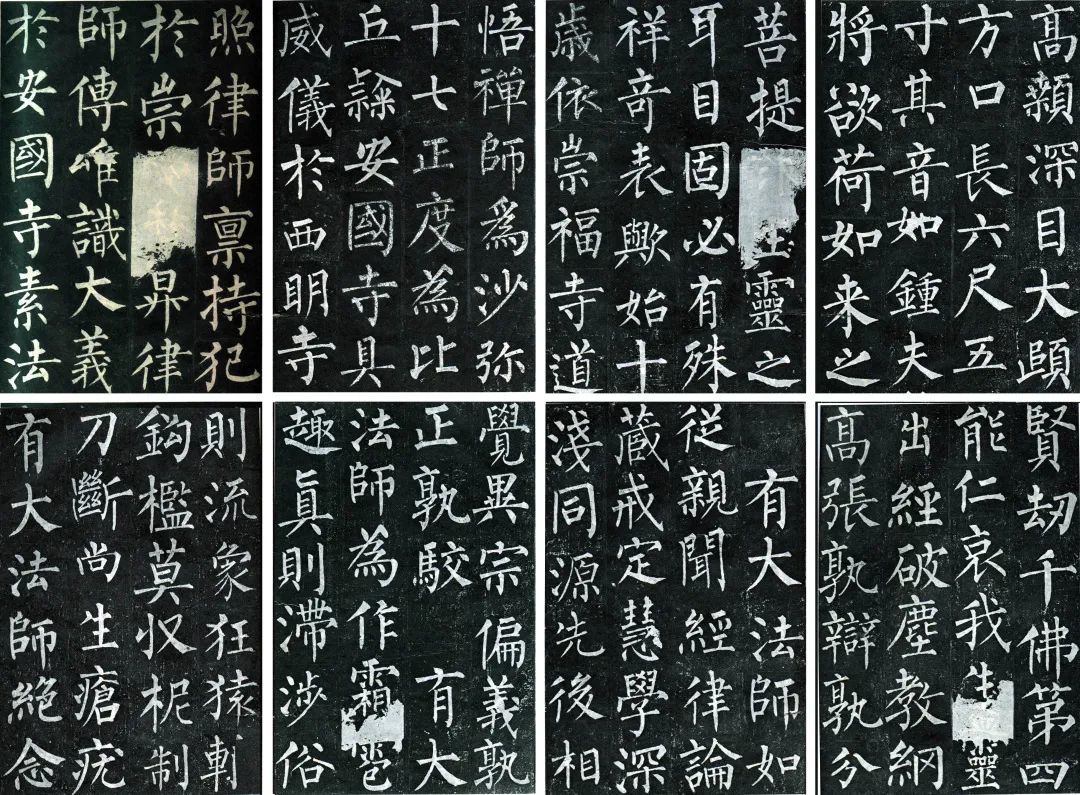 高顙深目大頤
方口長六尺五
寸其音如鍾夫
將欲荷如来之
菩提生靈之
耳目固必有殊
祥奇表歟始十
歲依崇福寺道
悟禪師爲沙弥
十七正度為比
丘隸安國寺具
威儀於西明寺
照律師禀持犯
於崇昇律
師傳唯識大義
於安國寺素法
賢劫千佛第四
能仁哀我生靈
出經破塵教網
高張孰辯孰分
有大法師如
從親聞經律論
藏戒定慧學深
淺同源先後相
覺異宗偏義孰
正孰駮有大
法師為作霜雹
趣真則滯涉俗
則流象狂猿輊
鈎檻莫収柅制
刀斷尚生瘡疣
有大法師絕念